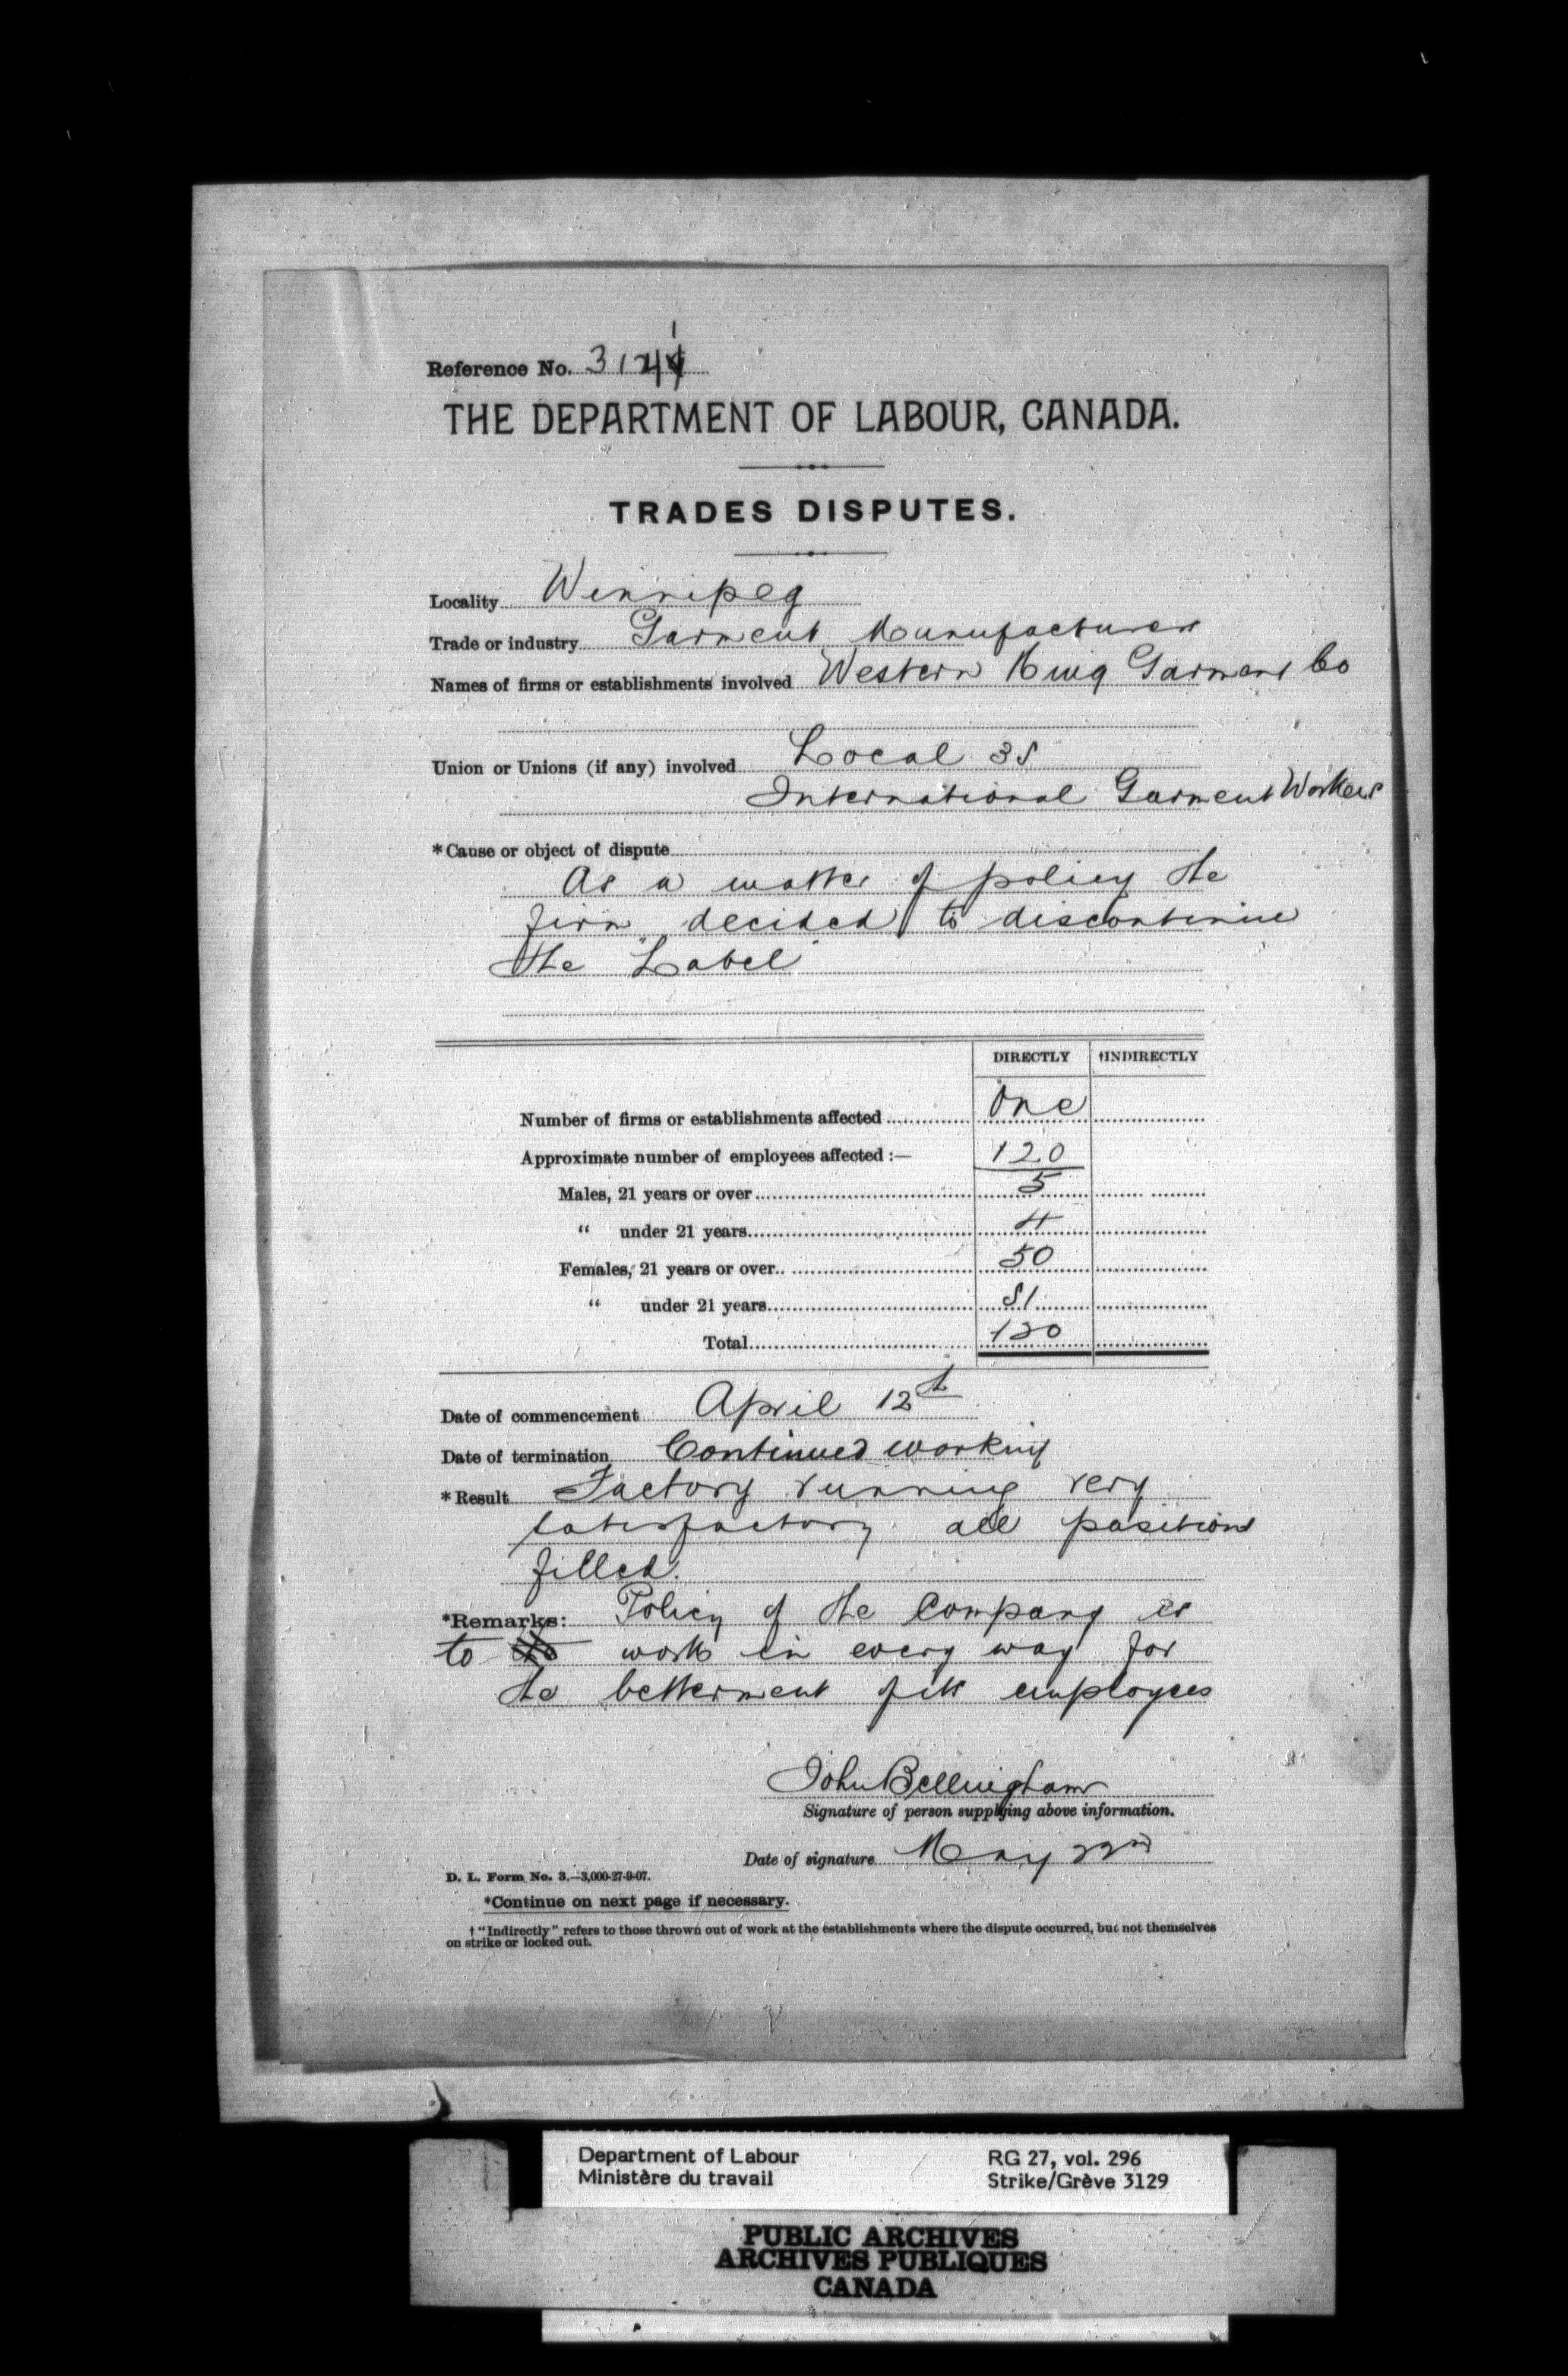 Reference No.
THE DEPARTMENT OF LABOUR, CANADA.
TRADES DISPUTES.
Locality Winnipeg
Trade or industry Garment Manufacturers
Names of firms or establishments involved Western King Garment Co
Union or Unions (if any) involved Local 35
International Garment Workers
*Cause or object of dispute
As a matter of policy the
firm decided to discontinue
the "Label"
DIRECTLY †INDIRECTLY
Number of firms or establishments affected One
Approximate number of employees affected :— 120
Males, 21 years or over 5
“ under 21 years 14
Females, 21 years or over 50
“ under 21 years 51
Total 120
Date of commencement April 12th
Date of termination Continued working
*Result Factory running very
satisfactory all positions
filled.
*Remarks: Policy of the Company is
to work in every way for
the betterment of its employees
John Bellingham
Signature of person supplying above information.
Date of signature May 22nd
D. L. Form No. 3.—3,000-27-9-07.
*Continue on next page if necessary.
† “Indirectly” refers to those thrown out of work at the establishments where the dispute occurred, but not themselves
on strike or locked out.
Department of Labour
Ministère du travail
RG 27, vol. 296
Strike/Grève 3129
PUBLIC ARCHIVES
ARCHIVES PUBLIQUES
CANADA